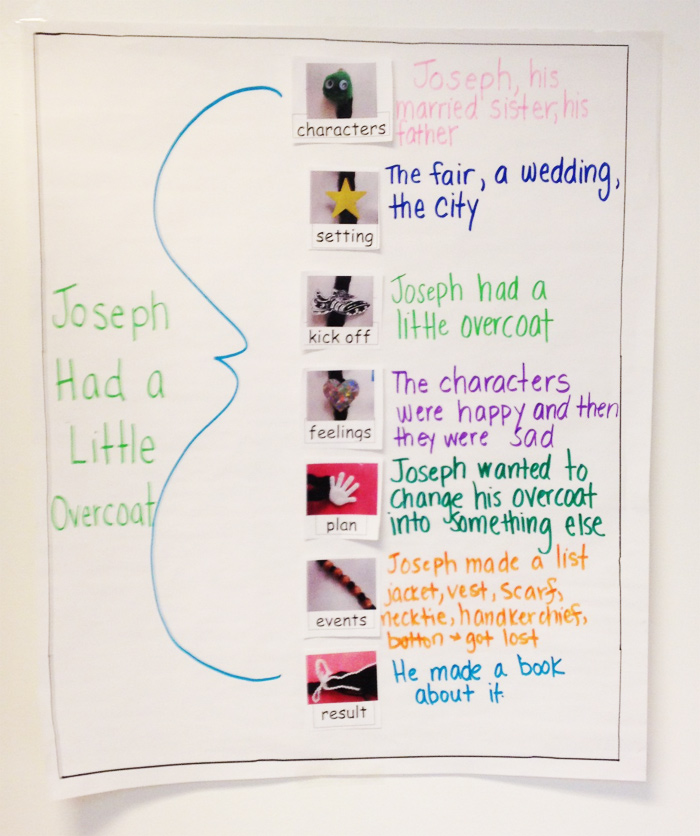 Joseph
Had a
Little
Overcoat
characters
Joseph, his
married sister, his
father
setting
The fair, a wedding,
the city
kick off
Joseph had a
little overcoat
feelings
The characters
were happy and then
they were sad
plan
Joseph wanted to
change his overcoat
into something else
events
Joseph made a list
jacket, vest, scarf,
necktie, handkerchief,
button → got lost
result
He made a book
about it.